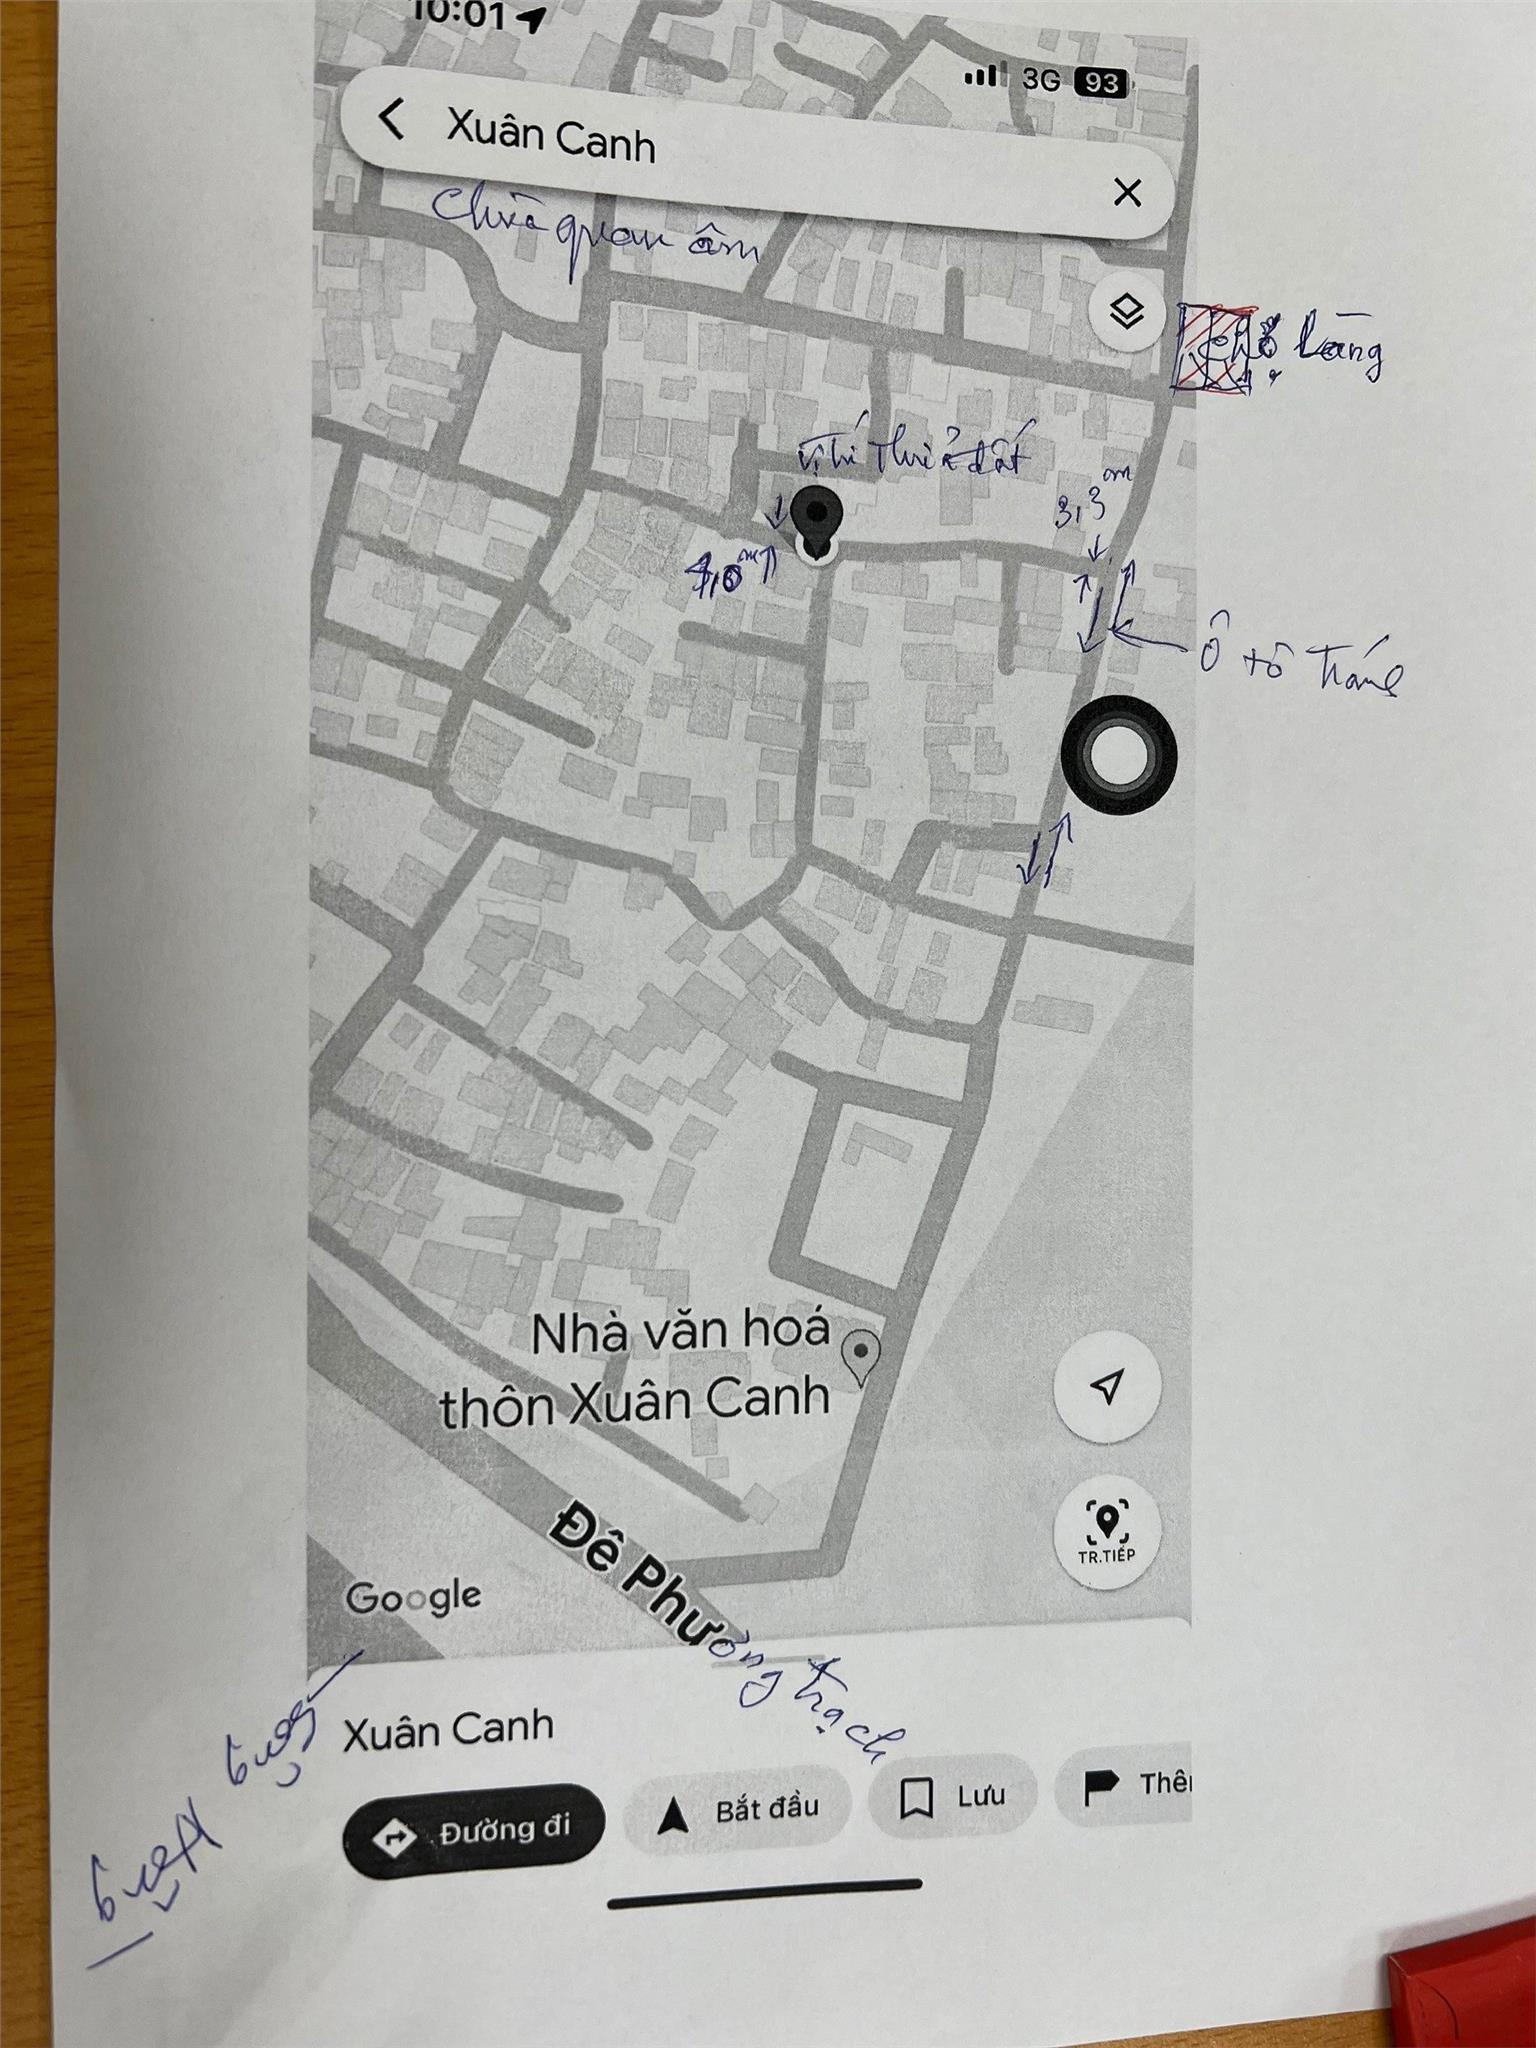 10:01
3G 93
Xuân Canh
Chùa quan âm
chợ Làng
Vị trí Thửa đất
3,3m
4,0m
Ô tô tránh
Nhà văn hoá
thôn Xuân Canh
TR.TIẾP
Google
Đê Phương trạch
Xuân Canh
Đường đi
Bắt đầu
Lưu
Thêr